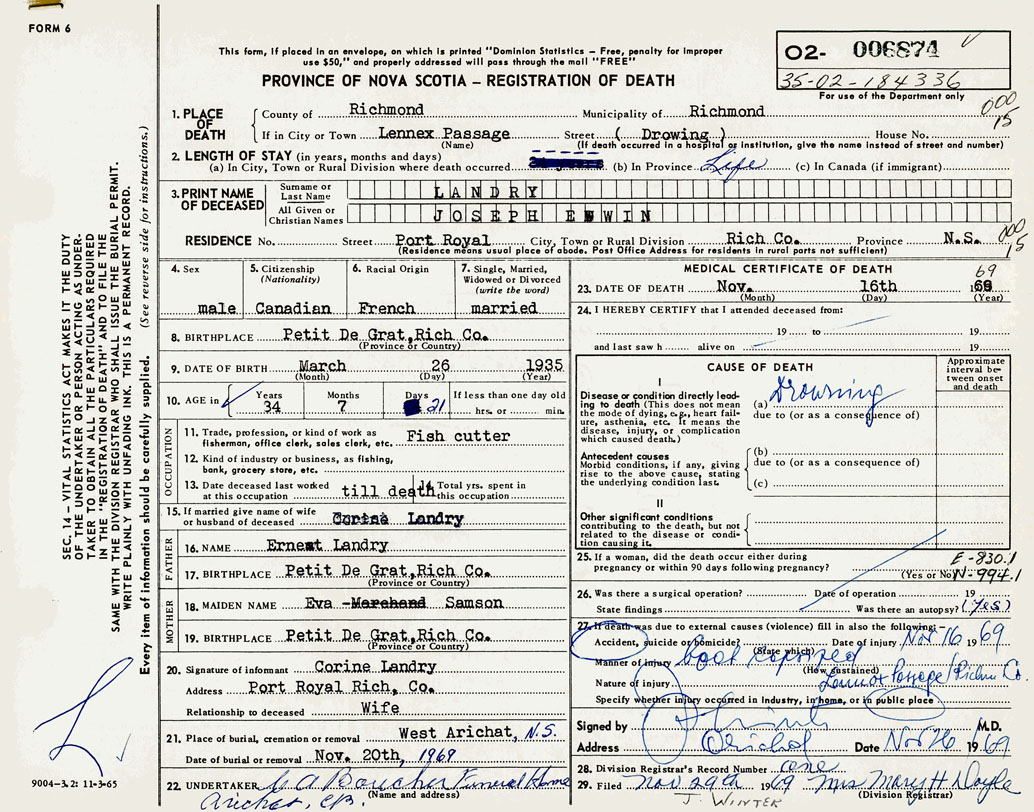 FORM 6
This form, if placed in an envelope, on which is printed "Dominion Statistics – Free, penalty for improper
use $50," and properly addressed will pass through the mail "FREE"
PROVINCE OF NOVA SCOTIA – REGISTRATION OF DEATH
02- 006874
35-02-184336
For use of the Department only
000
15
1. PLACE OF DEATH County of Richmond Municipality of Richmond
If in City or Town Lennex Passage Street ( Drowing ) House No.
(Name) (If death occurred in a hospital or institution, give the name instead of street and number)
2. LENGTH OF STAY (in years, months and days)
(a) In City, Town or Rural Division where death occurred (b) In Province Life (c) In Canada (if immigrant)
3. PRINT NAME OF DECEASED Surname or Last Name LANDRY
All Given or Christian Names JOSEPH EDWIN
RESIDENCE No. Street Port Royal City, Town or Rural Division Rich Co. Province N.S.
(Residence means usual place of abode. Post Office Address for residents in rural parts not sufficient)
000
15
4. Sex male
5. Citizenship (Nationality) Canadian
6. Racial Origin French
7. Single, Married, Widowed or Divorced (write the word) married
8. BIRTHPLACE Petit De Grat,Rich Co.
(Province or Country)
9. DATE OF BIRTH March 26 1935
(Month) (Day) (Year)
10. AGE in Years 34 Months 7 Days 21 If less than one day old hrs. or min.
OCCUPATION
11. Trade, profession, or kind of work as fisherman, office clerk, sales clerk, etc. Fish cutter
12. Kind of industry or business, as fishing, bank, grocery store, etc.
13. Date deceased last worked at this occupation till death
14. Total yrs. spent in this occupation
15. If married give name of wife or husband of deceased Corine Landry
FATHER
16. NAME Ernest Landry
17. BIRTHPLACE Petit De Grat,Rich Co.
(Province or Country)
MOTHER
18. MAIDEN NAME Eva Marchand Samson
19. BIRTHPLACE Petit De Grat,Rich Co.
(Province or Country)
20. Signature of informant Corine Landry
Address Port Royal Rich, Co.
Relationship to deceased Wife
21. Place of burial, cremation or removal West Arichat, N.S.
Date of burial or removal Nov. 20th, 1969
22. UNDERTAKER C A Boucher Funeral Home
(Name and address)
MEDICAL CERTIFICATE OF DEATH
69
23. DATE OF DEATH Nov. 16th 1968
(Month) (Day) (Year)
24. I HEREBY CERTIFY that I attended deceased from:
19 to 19
and last saw h alive on 19
CAUSE OF DEATH
Approximate interval between onset and death
I
Disease or condition directly leading to death (This does not mean the mode of dying, e.g., heart failure, asthenia, etc. It means the disease, injury, or complication which caused death.)
(a) Drowning
due to (or as a consequence of)
Antecedent causes
Morbid conditions, if any, giving rise to the above cause, stating the underlying condition last.
(b)
due to (or as a consequence of)
(c)
II
Other significant conditions contributing to the death, but not related to the disease or condition causing it.
25. If a woman, did the death occur either during pregnancy or within 90 days following pregnancy? (Yes or No)
E-830.1
N-994.1
26. Was there a surgical operation? Date of operation 19
State findings Was there an autopsy? (Yes)
27. If death was due to external causes (violence) fill in also the following:–
Accident, suicide or homicide? (State which) Date of injury Nov 16 1969
Manner of injury boat capsized
(How sustained)
Nature of injury Lennox Passage/Richm Co.
Specify whether injury occurred in industry, in home, or in public place
Signed by M.D.
Address Arichat Date Nov 26 1969.
28. Division Registrar's Record Number one
29. Filed Nov 29th 1969 Mrs Mary H Doyle
(Division Registrar)
J. WINTER
SEC. 14 – VITAL STATISTICS ACT MAKES IT THE DUTY
OF THE UNDERTAKER OR PERSON ACTING AS UNDER-
TAKER TO OBTAIN ALL THE PARTICULARS REQUIRED
IN THE "REGISTRATION OF DEATH" AND TO FILE THE
SAME WITH THE DIVISION REGISTRAR WHO SHALL ISSUE THE BURIAL PERMIT.
WRITE PLAINLY WITH UNFADING INK. THIS IS A PERMANENT RECORD.
Every item of information should be carefully supplied. (See reverse side for instructions.)
9004-3.2: 11-3-65